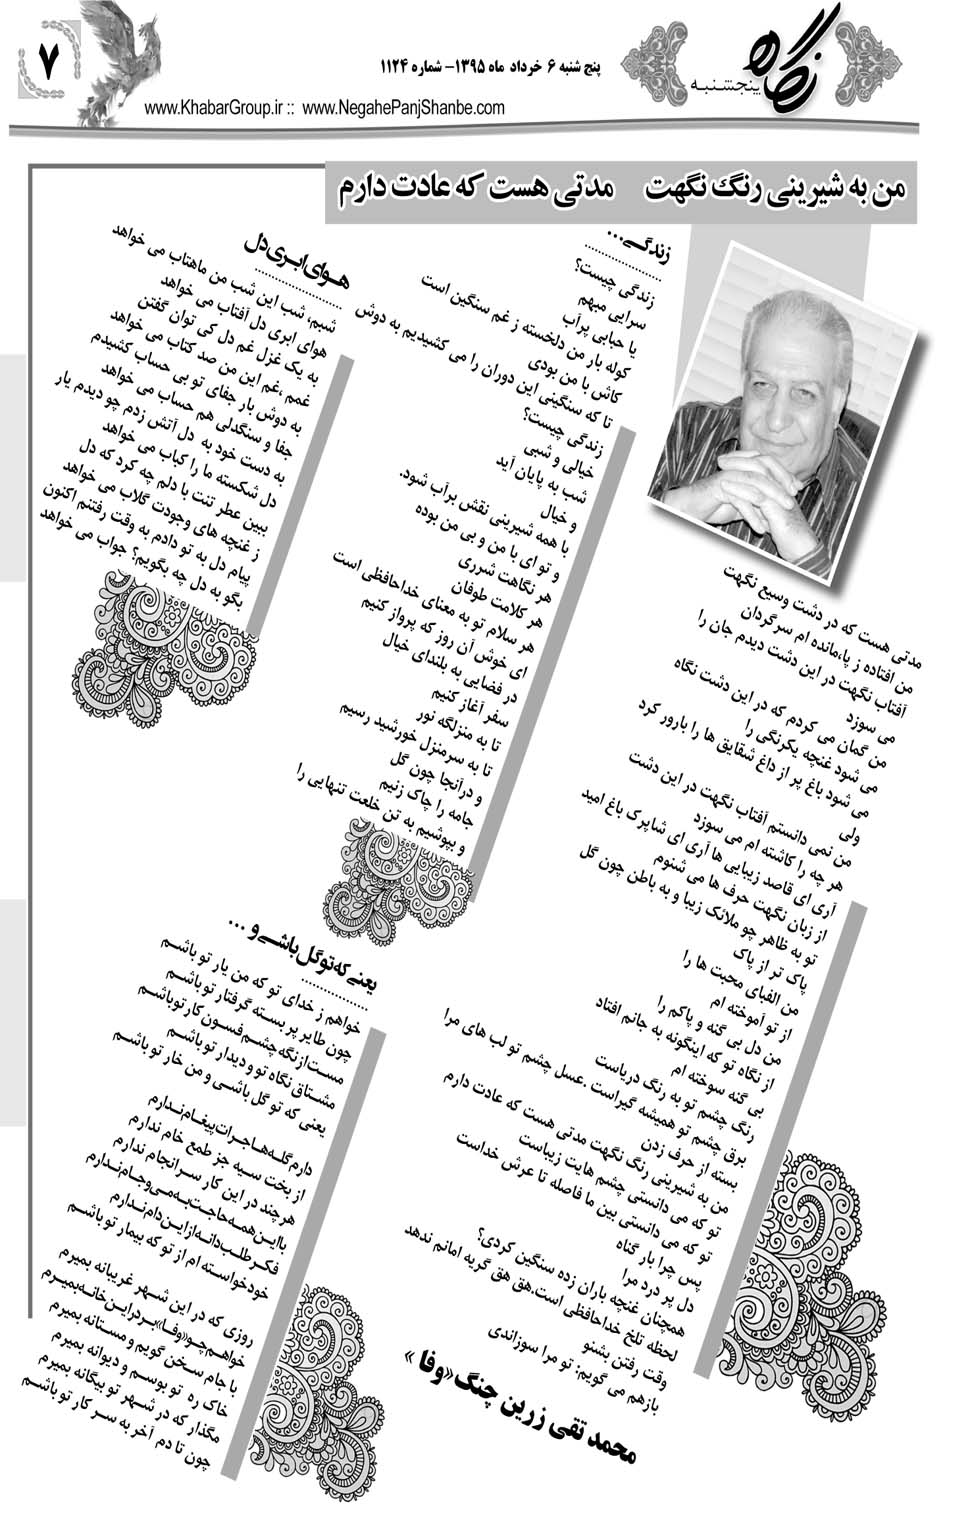 ۷
پنج شنبه ۶ خرداد ماه ۱۳۹۵- شماره ۱۱۲۴
www.KhabarGroup.ir :: www.NegahePanjShanbe.com
نگاه پنجشنبه
من به شیرینی رنگ نگهت مدتی هست که عادت دارم
مدتی هست که در دشت وسیع نگهت
من افتاده ز پا،مانده ام سرگردان
آفتاب نگهت در این دشت دیدم جان را
می سوزد
من گمان می کردم که در این دشت نگاه
می شود غنچه یکرنگی را
می شود باغ پر از داغ شقایق ها را بارور کرد
ولی
من نمی دانستم آفتاب نگهت در این دشت
هر چه را کاشته ام می سوزد
آری ای قاصد زیبایی ها آری ای شاپرک باغ امید
از زبان نگهت حرف ها می شنوم
تو به ظاهر چو ملائک زیبا و به باطن چون گل
پاک تر از پاک
من الفبای محبت ها را
از تو آموخته ام
من دل بی گنه و پاکم را
از نگاه تو که اینگونه به جانم افتاد
بی گنه سوخته ام
رنگ چشم تو به رنگ دریاست
برق چشم تو همیشه گیراست .عسل چشم تو لب های مرا
بسته از حرف زدن
من به شیرینی رنگ نگهت مدتی هست که عادت دارم
تو که می دانستی چشم هایت زیباست
تو که می دانستی بین ما فاصله تا عرش خداست
پس چرا بار گناه
دل پر درد مرا
همچنان غنچه باران زده سنگین کردی؟
لحظه تلخ خداحافظی است،هق هق گریه امانم ندهد
وقت رفتن بشنو
بازهم می گویم: تو مرا سوزاندی
محمد تقی زرین چنگ«وفا »
زندگی...
زندگی چیست؟
سرابی مبهم
یا حبابی پرآب
کوله بار من دلخسته ز غم سنگین است
کاش با من بودی
تا که سنگینی این دوران را می کشیدیم به دوش
زندگی چیست؟
خیالی و شبی
شب به پایان آید
و خیال
با همه شیرینی نقش برآب شود.
و تو ای با من و بی من بوده
هر نگاهت شرری
هر کلامت طوفان
هر سلام تو به معنای خداحافظی است
ای خوش آن روز که پرواز کنیم
در فضایی به بلندای خیال
سفر آغاز کنیم
تا به منزلگه نور
تا به سرمنزل خورشید رسیم
و درآنجا چون گل
جامه را چاک زنیم
و بپوشیم به تن خلعت تنهایی را
هـوای ابـری دل
شبم، شب این شب من ماهتاب می خواهد
هوای ابری دل آفتاب می خواهد
به یک غزل غم دل کی توان گفتن
غمم ،غم این من صد کتاب می خواهد
به دوش بار جفای تو بی حساب کشیدم
جفا و سنگدلی هم حساب می خواهد
به دست خود به دل آتش زدم چو دیدم یار
دل شکسته ما را کباب می خواهد
ببین عطر تنت با دلم چه کرد که دل
ز غنچه های وجودت گلاب می خواهد
پیام دل به تو دادم به وقت رفتنم اکنون
بگو به دل چه بگویم؟ جواب می خواهد
یعنی که تو گل باشی و ...
خواهم ز خدای تو که من یار تو باشم
چون طایر پر بسته گرفتار تو باشم
مست از نگه چشم فسون کار تو باشم
مشتاق نگاه تو و دیدار تو باشم
یعنی که تو گل باشی و من خار تو باشم
دارم گله ها جرات پیغام ندارم
از بخت سیه جز طمع خام ندارم
هرچند در این کار سرانجام ندارم
با این همه حاجت به می و جام ندارم
فکر طلب دانه از این دام ندارم
خود خواسته ام از تو که بیمار تو باشم
روزی که در این شهر غریبانه بمیرم
خواهم چو «وفا» بر در این خانه بمیرم
با جام سخن گویم و مستانه بمیرم
خاک ره تو بوسم و دیوانه بمیرم
مگذار که در شهر تو بیگانه بمیرم
چون تا دم آخر به سر کار تو باشم